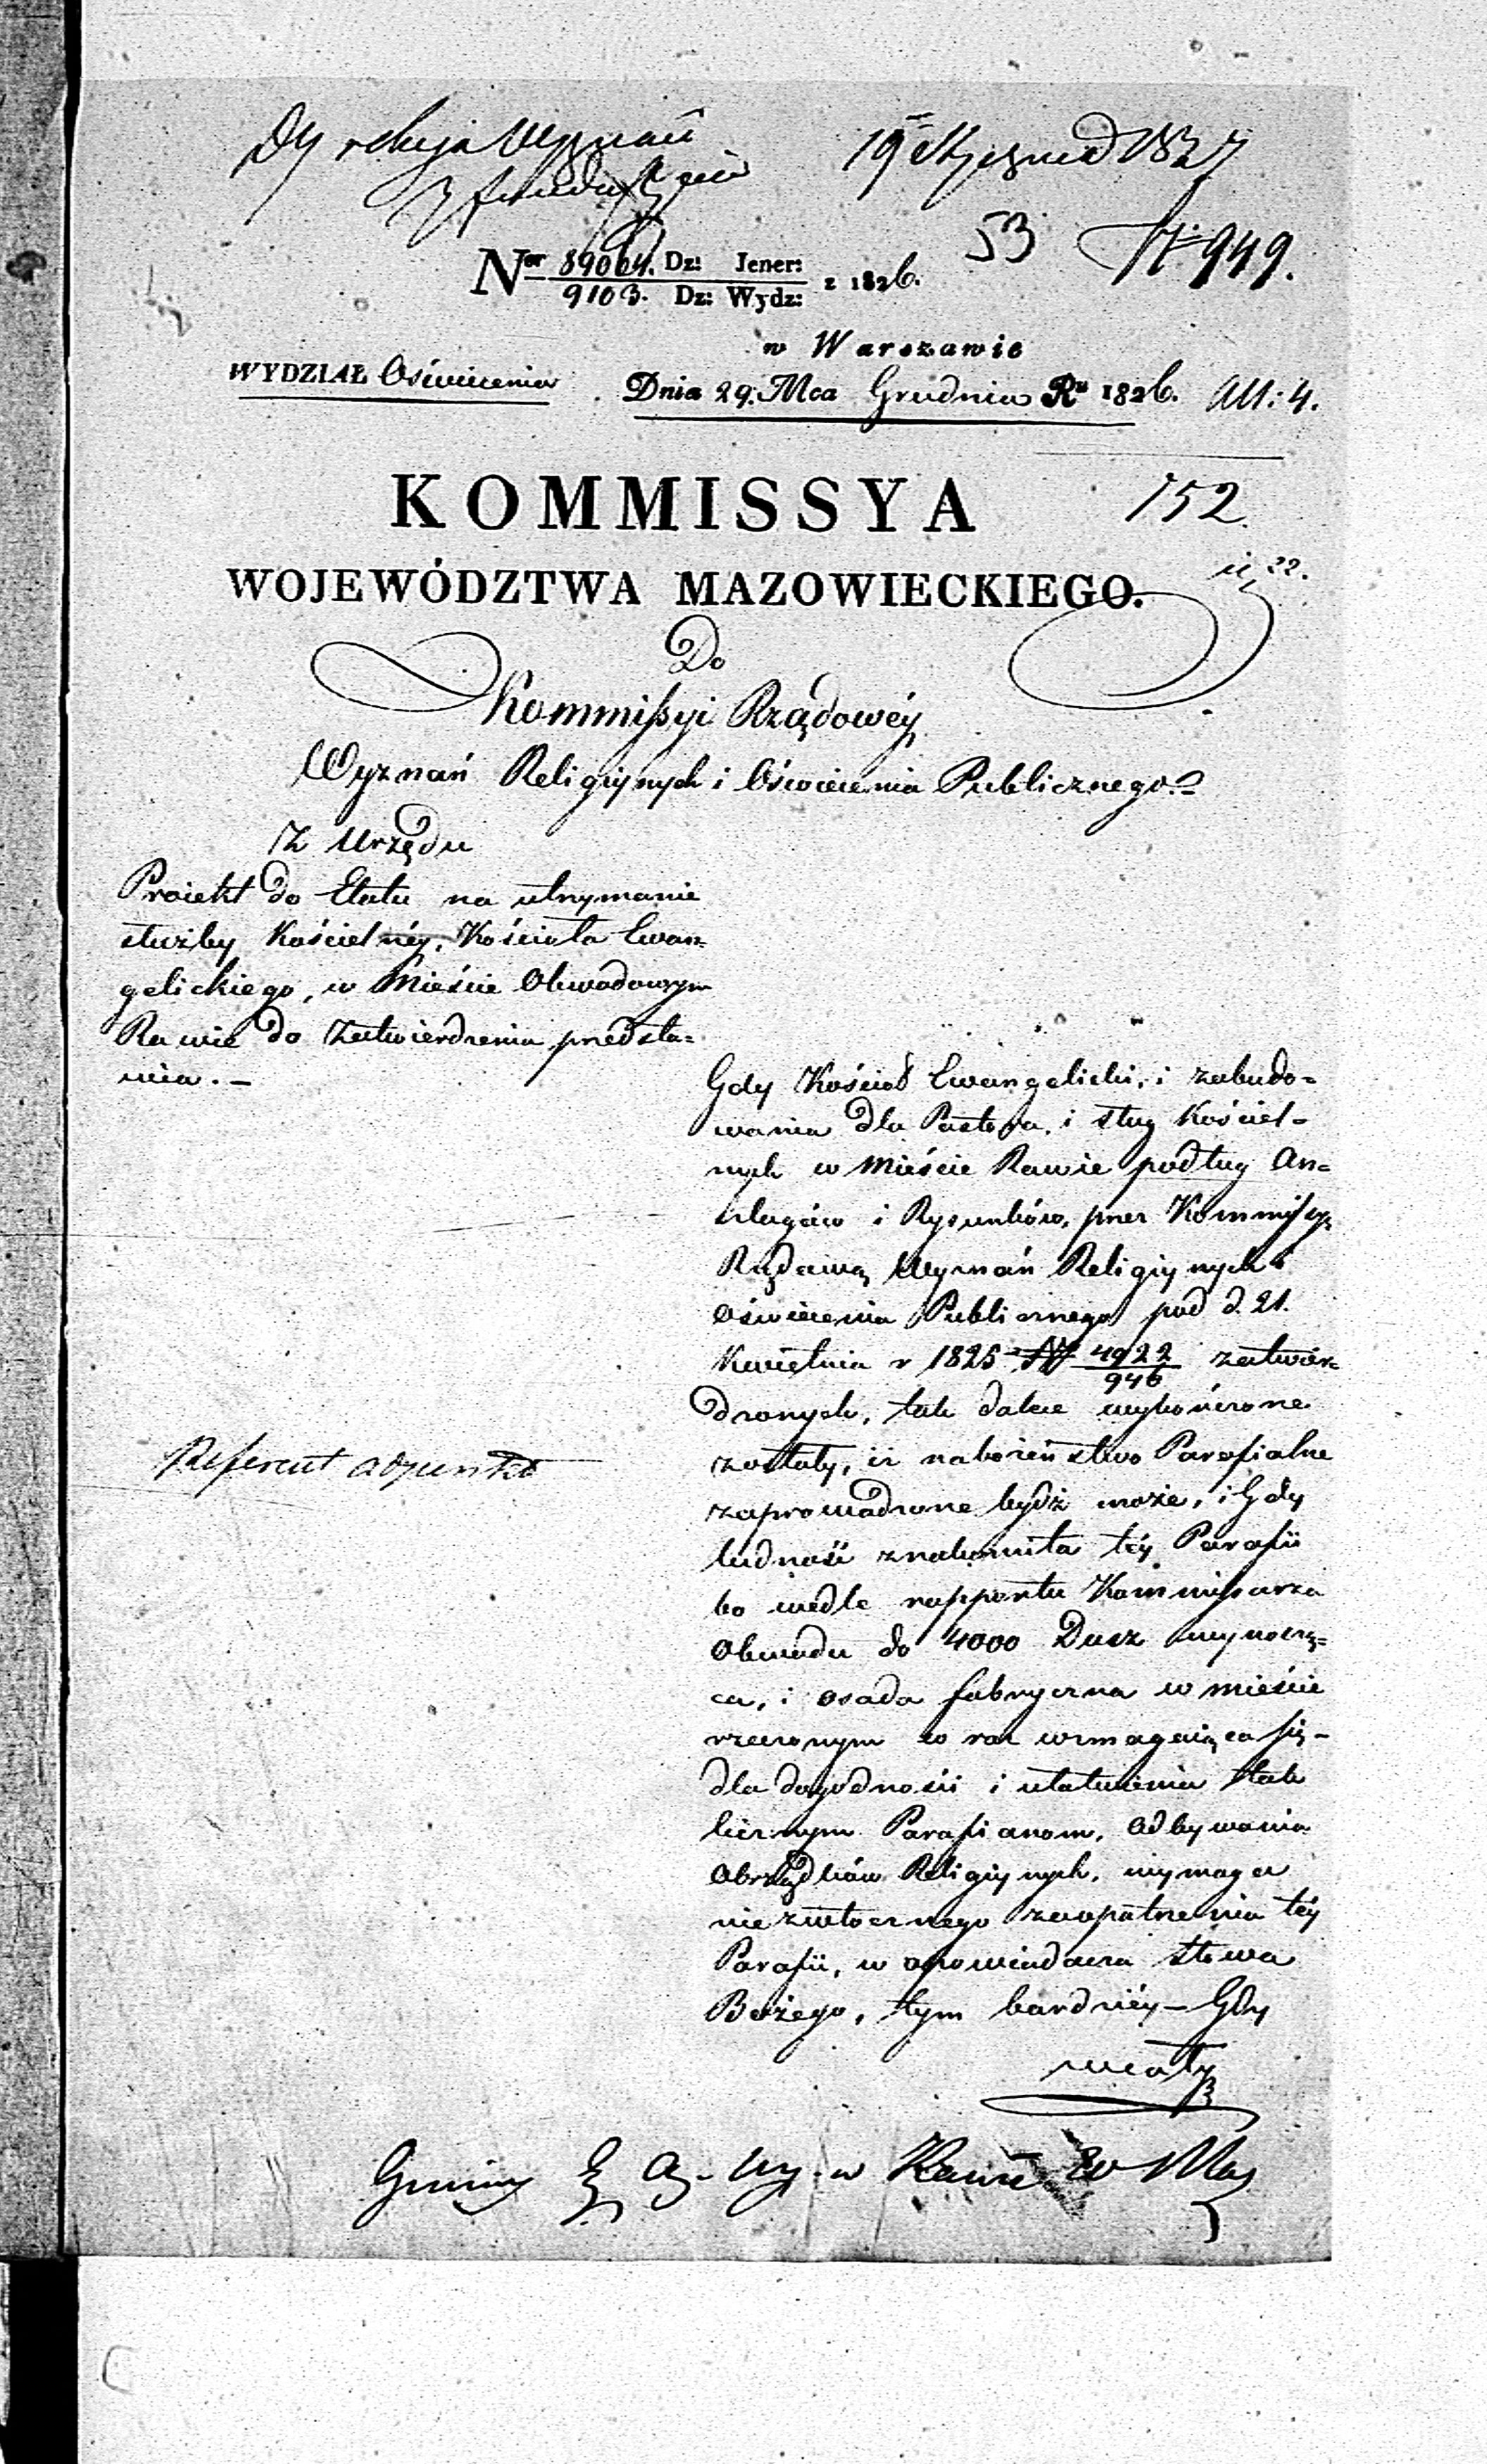 Dyrekcja Wyznań
19 Stycznia 1827
53 N 949.
Nor 89064. Dz: Jener: z 1826.
9103. Dz: Wydz:
w Warszawie
WYDZIAŁ Oświecenia
Dnia 29. Mca Grudnia Ru 1826. All: 4.
KOMMISSYA
152
WOJEWÓDZTWA MAZOWIECKIEGO.
22.
Do
Kommissyi Rządowéy
Wyznań Religiynych i Oświecenia Publicznego.
Z Urzędu
Proiekt do Etatu na utrzymanie
służby Kościelnéy, Kościoła Ewan=
gelickiego, w Mieście Obwodowym
Rawie do Zatwierdzenia przedsta=
wia. –
Gdy Kościoł Ewangelicki, i zabudo=
wania dla Pastora, i sług Kościel=
nych w Mieście Rawie podług An=
szlagów i Rysunków, przez Kommissyą
Rządową Wyznań Religiynych i
Oświecenia Publicznego pod d. 21.
Kwietnia r 1825 N 4922/946 zatwier=
dzonych, tak dalece wykończone
zostały, iż nabożeństwo Parafialne
zaprowadzone bydź może, i Gdy
ludność znakomita téy Parafii
bo wedle rapportu Kommissarza
Obwodu do 4000 Dusz wynoszą=
ca, i osada fabryczna w mieście
rzeczonym co raz wzmagaiąca się –
dla dogodności i ułatwienia tak
licznym Parafianom, odbywania
Obrządków Religiynych, wymaga
niezwłocznego zaopatrzenia téy
Parafii, w opowiadacza słowa
Bożego, tym bardziéy – Gdy
Referent adjunkt
Gminy w Rawie